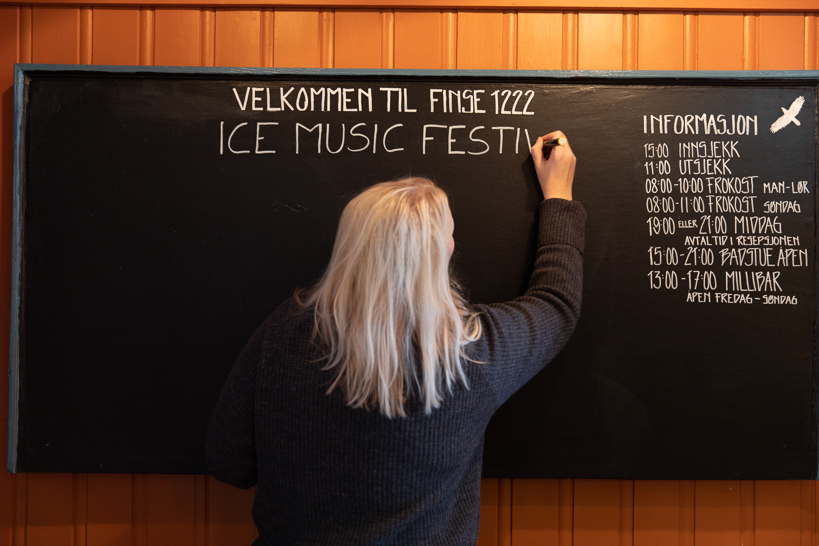 VELKOMMEN TIL FINSE 1222
ICE MUSIC FESTIV
INFORMASJON
15:00 INNSJEKK
11:00 UTSJEKK
08:00-10:00 FROKOST MAN-LØR
08:00-11:00 FROKOST SØNDAG
19:00 ELLER 21:00 MIDDAG
AVTAL TID I RESEPSJONEN
15:00-21:00 BADSTUE ÅPEN
13:00-17:00 MILLIBAR
ÅPEN FREDAG-SØNDAG